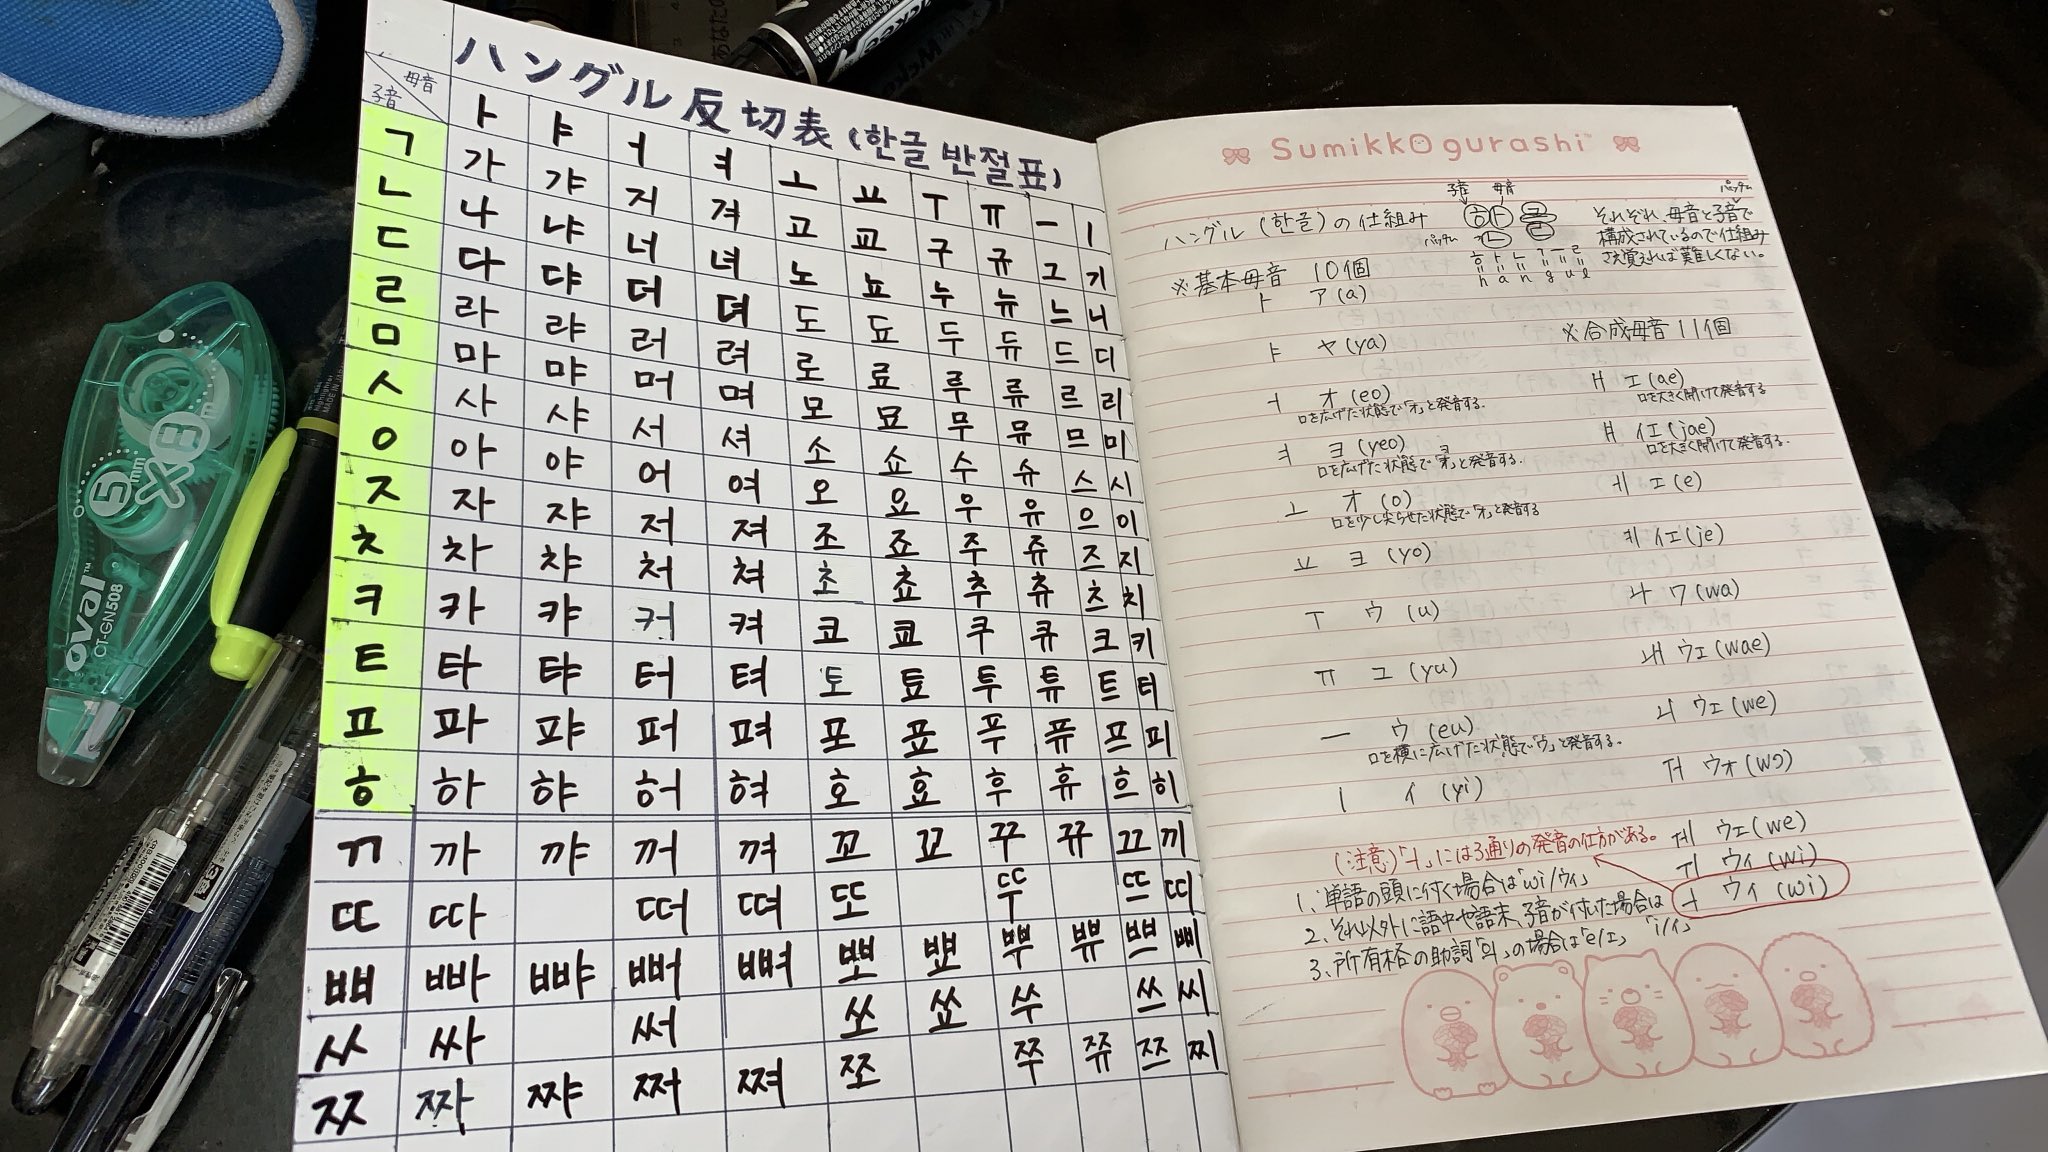 ハングル反切表(한글 반절표)
母音
子音
ㅏ ㅑ ㅓ ㅕ ㅗ ㅛ ㅜ ㅠ ㅡ ㅣ
ㄱ 가 갸 거 겨 고 교 구 규 그 기
ㄴ 나 냐 너 녀 노 뇨 누 뉴 느 니
ㄷ 다 댜 더 뎌 도 됴 두 듀 드 디
ㄹ 라 랴 러 려 로 료 루 류 르 리
ㅁ 마 먀 머 며 모 묘 무 뮤 므 미
ㅅ 사 샤 서 셔 소 쇼 수 슈 스 시
ㅇ 아 야 어 여 오 요 우 유 으 이
ㅈ 자 쟈 저 져 조 죠 주 쥬 즈 지
ㅊ 차 챠 처 쳐 초 쵸 추 츄 츠 치
ㅋ 카 캬 커 켜 코 쿄 쿠 큐 크 키
ㅌ 타 탸 터 텨 토 툐 투 튜 트 터
ㅍ 파 퍄 퍼 펴 포 표 푸 퓨 프 피
ㅎ 하 햐 허 혀 호 효 후 휴 흐 히
ㄲ 까 꺄 꺼 껴 꼬 꼬 꾸 뀨 끄 끼
ㄸ 따 떠 뗘 또 뚜 뜨 띠
ㅃ 빠 뺘 뻐 뼈 뽀 뾰 뿌 쀼 쁘 삐
ㅆ 싸 써 쏘 쑈 쑤 쓰 씨
ㅉ 짜 쨔 쩌 쪄 쪼 쭈 쮸 쯔 찌
Sumikkogurashi
子音 母音 パッチム
ハングル(한글)の仕組み
パッチム
それぞれ、母音と子音で
構成されているので仕組み
さえ覚えれば難しくない。
ㅎ ㅏ ㄴ ㄱ ㅡ ㄹ
h a n g u l
※基本母音 10個
ㅏ ア (a)
ㅑ ヤ (ya)
ㅓ オ (eo)
口を広げた状態で「オ」と発音する.
ㅕ ヨ (yeo)
口を広げた状態で「ヨ」と発音する.
ㅗ オ (o)
口を少し尖らせた状態で「オ」と発音する
ㅛ ヨ (yo)
ㅜ ウ (u)
ㅠ ユ (yu)
ㅡ ウ (eu)
口を横に広げた状態で「ウ」と発音する.
ㅣ イ (yi)
※合成母音 11個
ㅐ エ (ae)
口を大きく開けて発音する
ㅒ イエ (jae)
口を大きく開けて発音する.
ㅔ エ (e)
ㅖ イエ (je)
ㅘ ワ (wa)
ㅙ ウェ (wae)
ㅚ ウェ (we)
ㅝ ウォ (wo)
ㅞ ウェ (we)
ㅟ ウィ (wi)
ㅢ ウィ (wi)
(注意)「ㅢ」には3通りの発音の仕方がある。
1、単語の頭に付く場合は「wi/ウィ」
2、それ以外に語中や語末、子音が付いた場合は「i/イ」
3、所有格の助詞「의」の場合は「e/エ」
5mm
X8m
oval™
CT-GN508
highlighter
MADE IN JAPAN